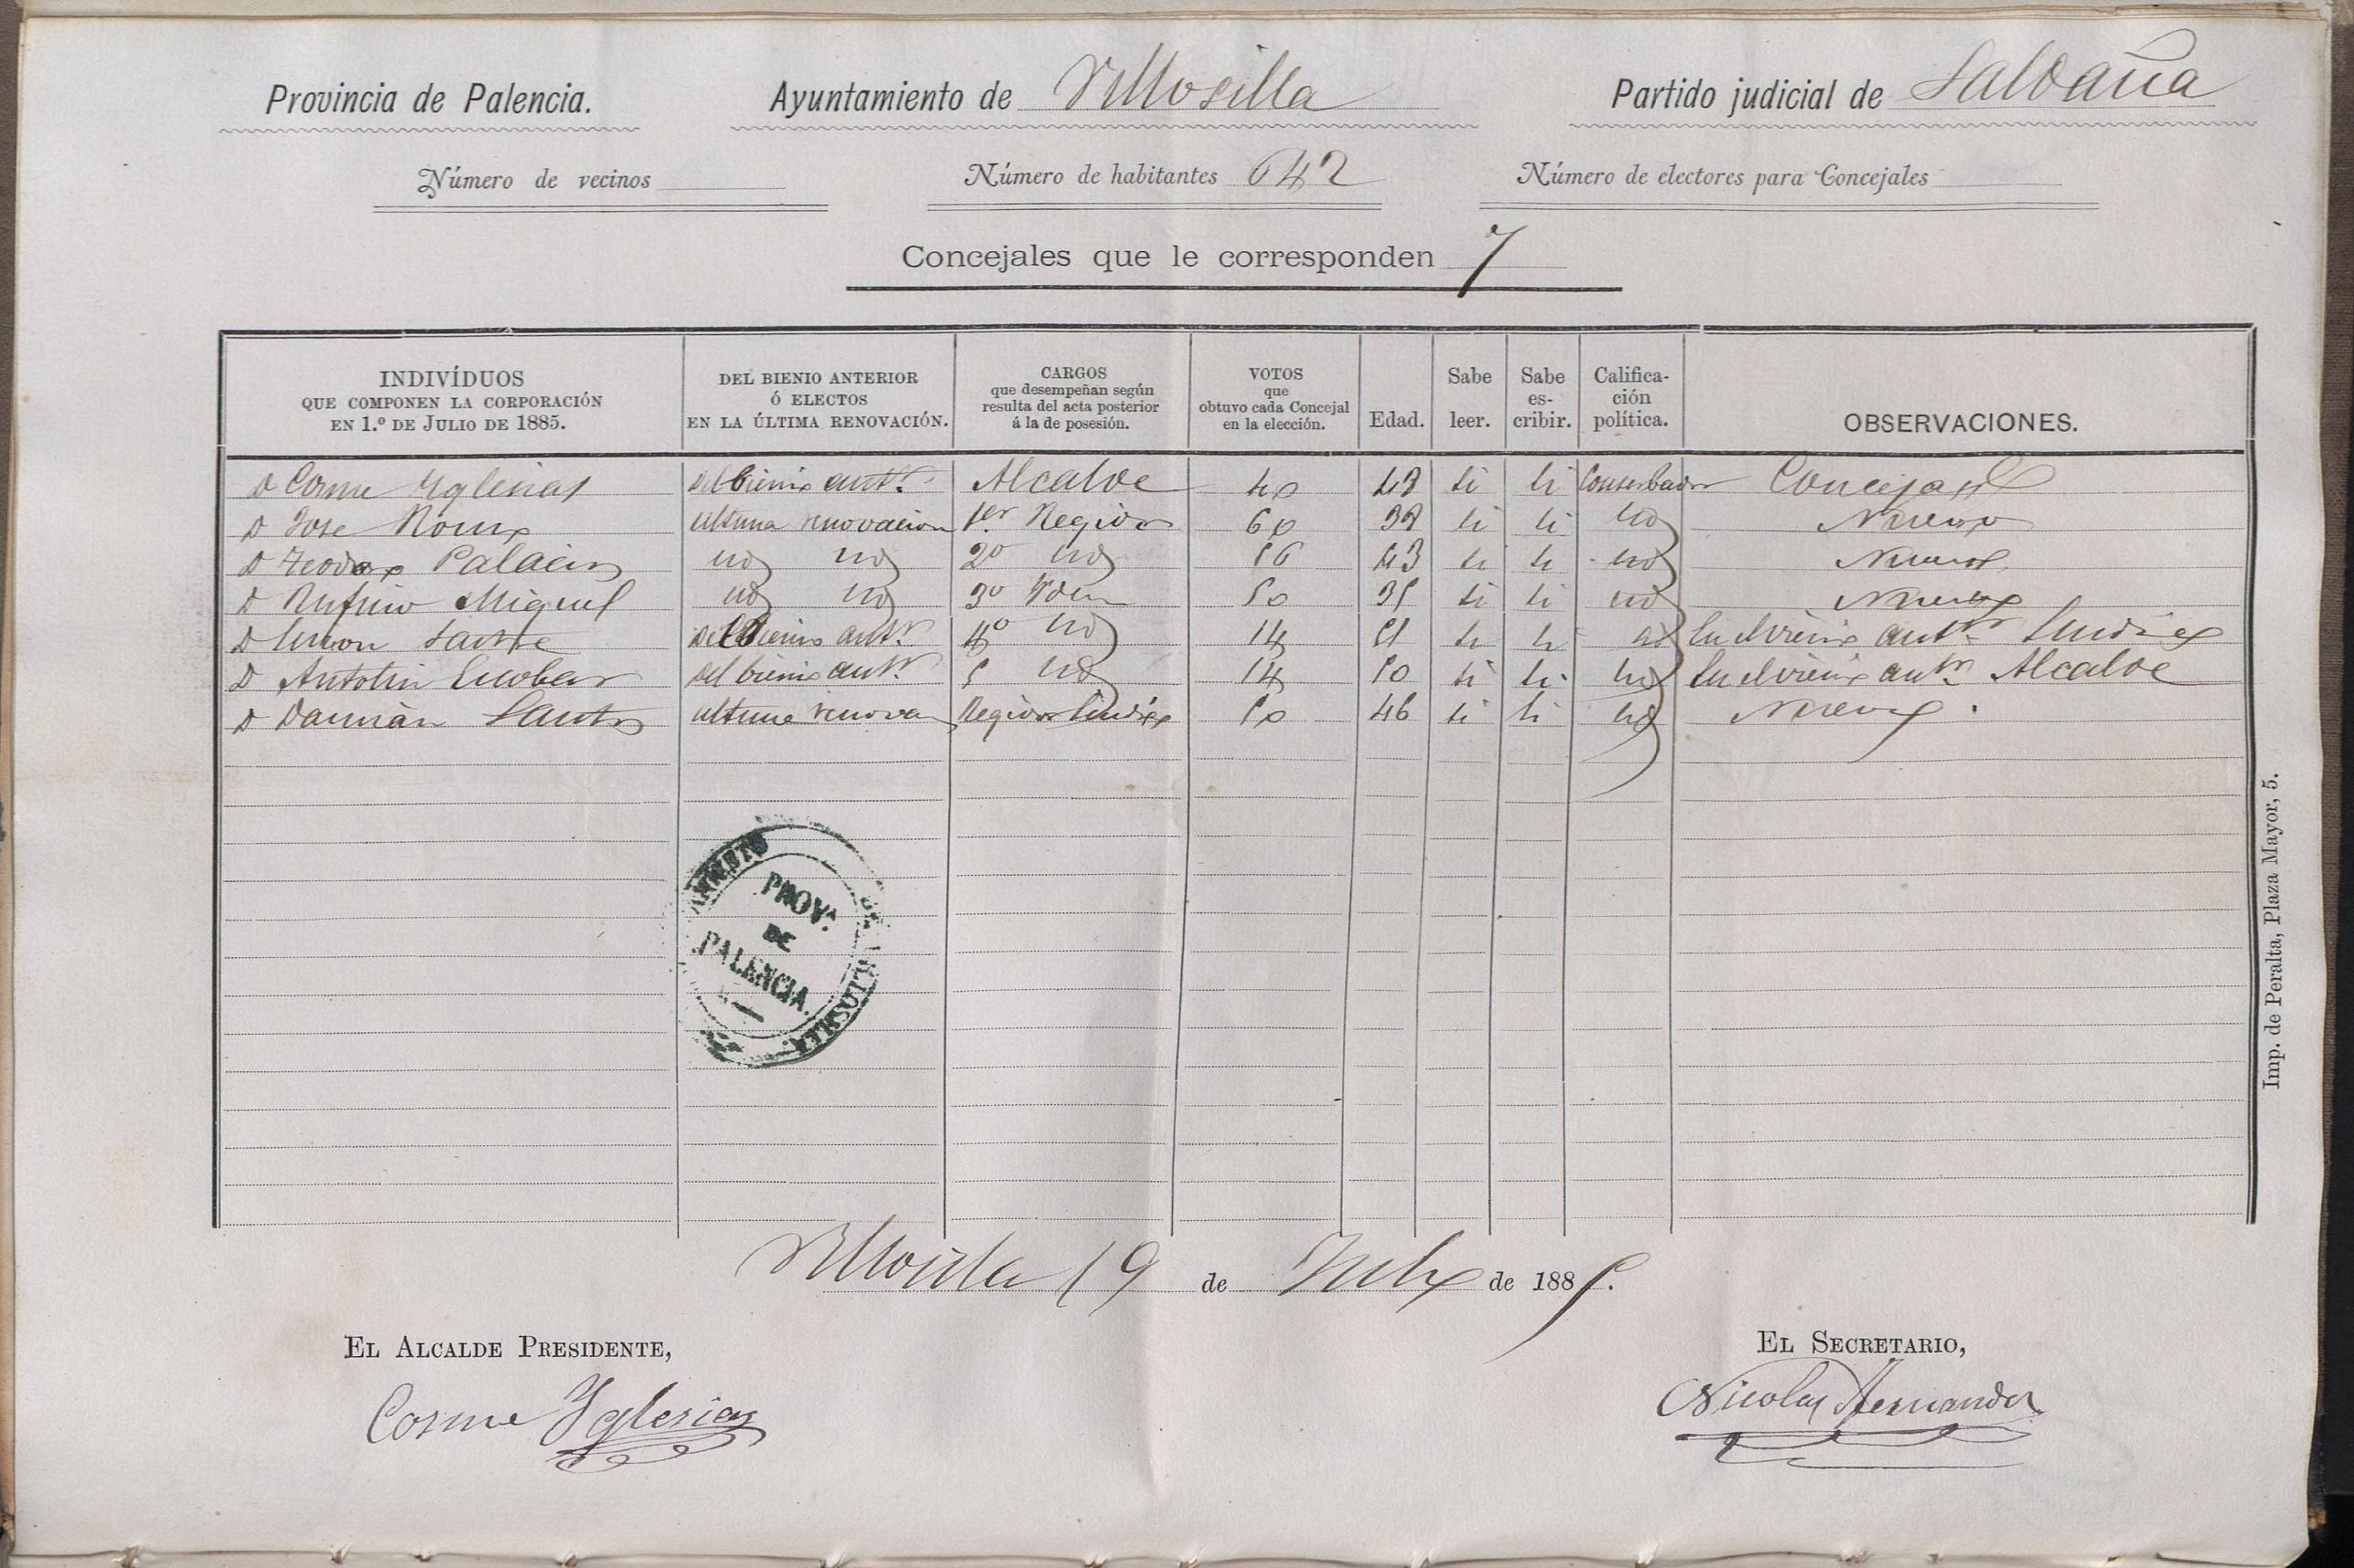 Provincia de Palencia. Ayuntamiento de Villosilla Partido judicial de Saldaña
Número de vecinos Número de habitantes 642 Número de electores para Concejales
Concejales que le corresponden 7
INDIVÍDUOS QUE COMPONEN LA CORPORACIÓN EN 1.º DE JULIO DE 1885. DEL BIENIO ANTERIOR Ó ELECTOS EN LA ÚLTIMA RENOVACIÓN. CARGOS que desempeñan según resulta del acta posterior á la de posesión. VOTOS que obtuvo cada Concejal en la elección. Edad. Sabe leer. Sabe es-cribir. Califica-ción política. OBSERVACIONES.
D Cosme Yglesias del bienio antr. Alcalde 40 43 si si Conserbador Concejal
D Jose ultima renovacion 1er Regidor 60 si si id Nuevo
D Teodoro Palacin id id 2º id 56 43 si si id Nuevo
D Rufino Miguel id id 3º Ydem 50 35 si si id Nuevo
D Simon Sastre del bienio antr. 4º id 14 51 si si id En el vienio antr Sindico
D Antolin Escobar del bienio antr. 5 id 14 50 si si id En el vienio antr Alcalde
D Damián Santos ultima renova Regidor Sindico 50 46 si si id Nuevo.
PROV.ª
DE
PALENCIA.
VILLOSILLA
Villosilla 19 de Julio de 1885.
EL ALCALDE PRESIDENTE, EL SECRETARIO,
Cosme Yglesias Nicolas Hernandez
Imp. de Peralta, Plaza Mayor, 5.